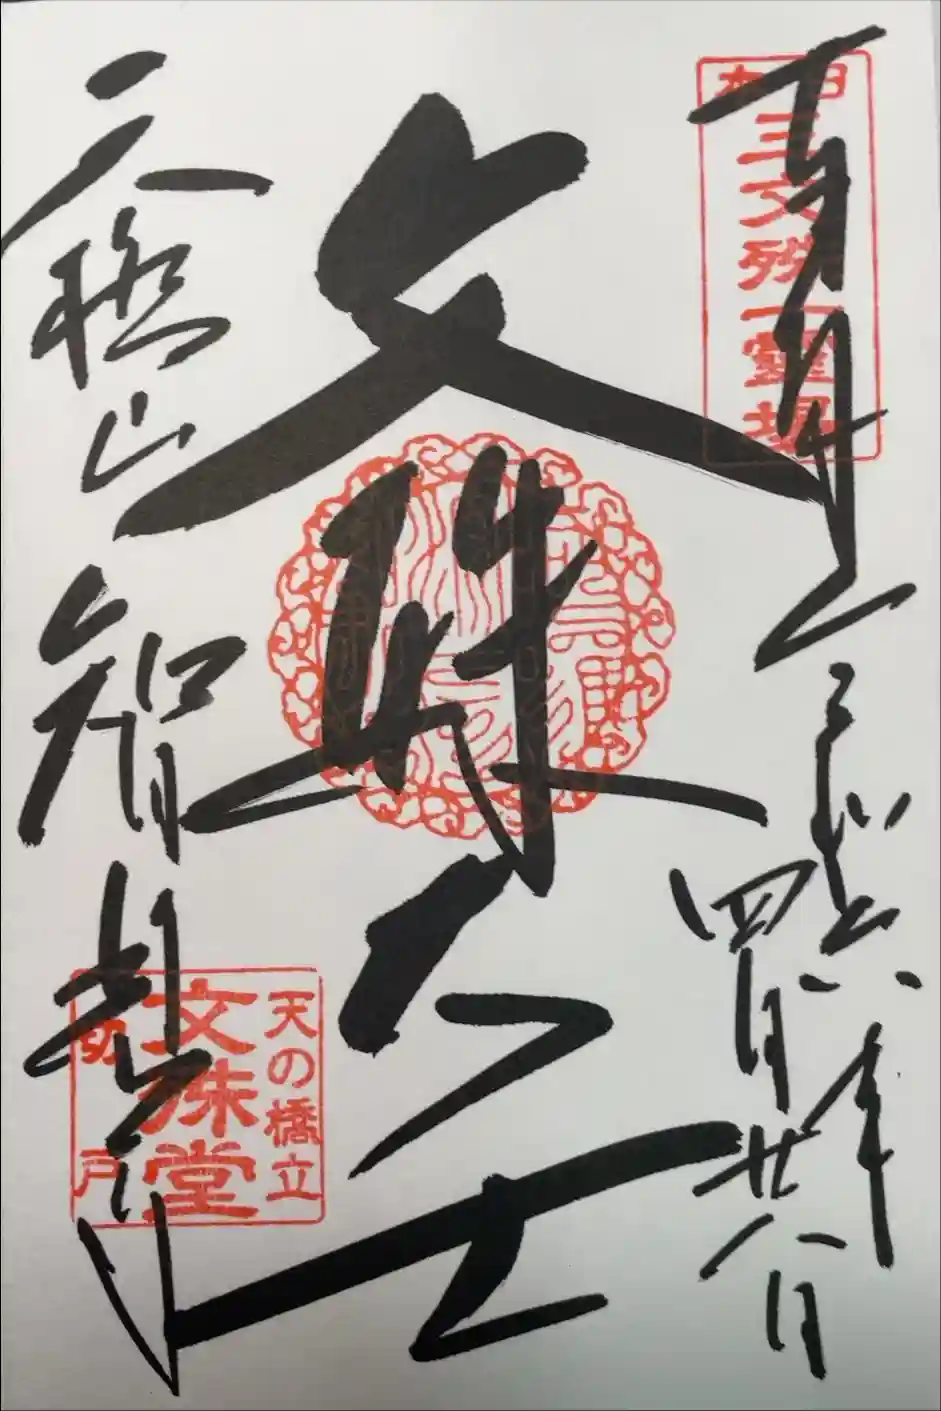 奉拝
令和六年
四月廿八日
日本
三文殊一靈場
文殊大士
天橋山
智恩寺
天の橋立
文殊堂
切戸